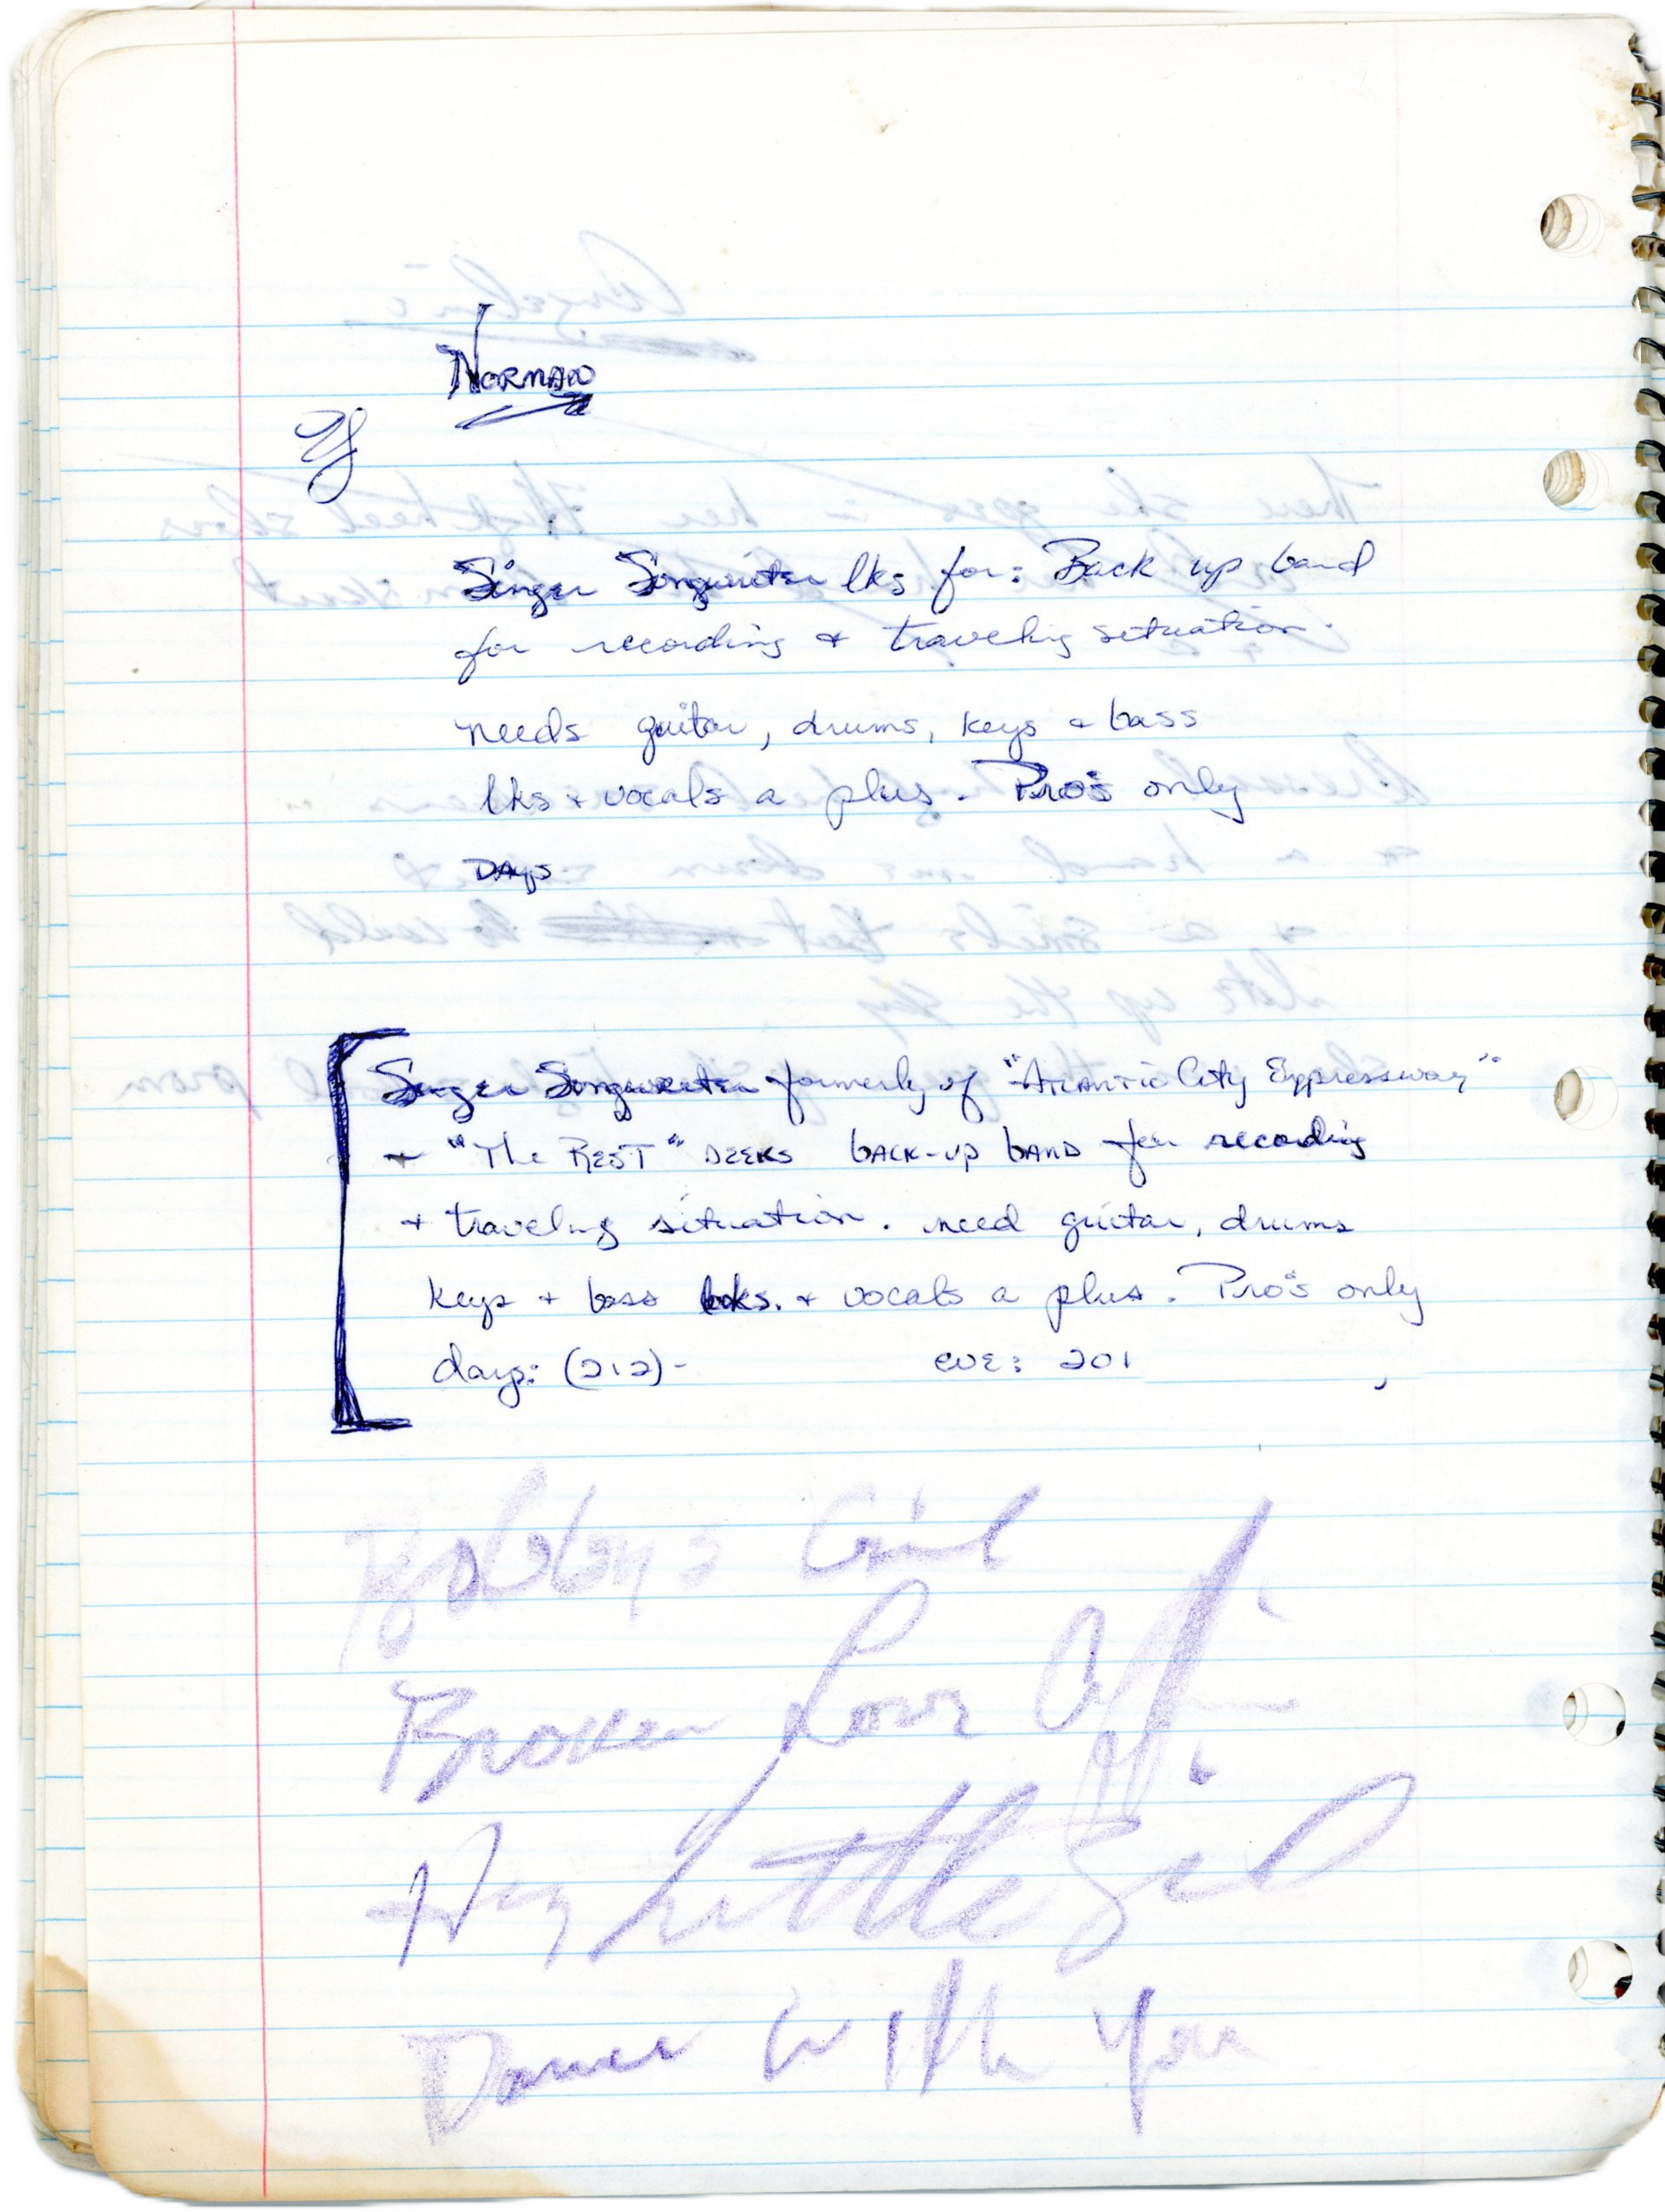 Norman
If
Singer Songwriter lks for: Back up band
for recording + traveling situation.
needs guitar, drums, keys + bass
lks + vocals a plus. Pro's only
DAYS
Singer Songwriter formerly of "Atlantic City Expressway"
+ "The REST" SEEKS BACK-UP BAND for recording
+ traveling situation. need guitar, drums
keys + bass lks. + vocals a plus. Pro's only
days: (212)- eve: 201
Bobby's Girl
Broken Love Affair
Hey Little Girl
Dance With You